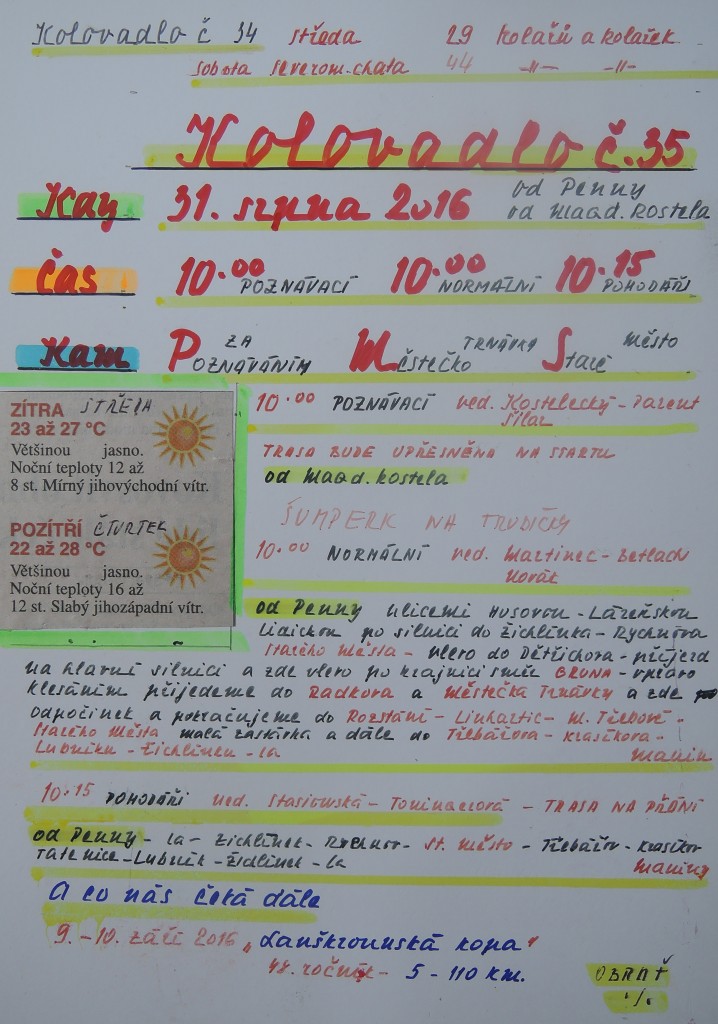 Kolovadlo č 34 středa 29 kolářů a kolařek
sobota severom. chata 44 -"- -"-
Kolovadlo č.35
Kdy 31. srpna 2016 od Penny
od Maad. kostela
Čas 10.00 POZNÁVACÍ 10.00 NORMÁLNÍ 10.15 POHODÁŘI
Kam ZA POZNÁVÁNÍM MĚSTEČKO TRNÁVKA Staré MĚSTO
ZÍTRA STŘEDA
23 až 27 °C
Většinou jasno.
Noční teploty 12 až
8 st. Mírný jihovýchodní vítr.
POZÍTŘÍ ČTVRTEK
22 až 28 °C
Většinou jasno.
Noční teploty 16 až
12 st. Slabý jihozápadní vítr.
10.00 POZNÁVACÍ ved. Kostelecký - Parent
Silar
TRASA BUDE UPŘESNĚNA NA STARTU
od Maad. kostela
ŠUMPERK NA TRUBIČKY
10.00 NORMÁLNÍ ved. Martinec - Betlach
Novák
od Penny ulicemi Husovou - Lázeňskou
Lidickou po silnici do Žichlínka - Rychnova
Starého Města - vlevo do Dětřichova - příjezd
na hlavní silnici a zde vlevo po krajnici směr BRUNA - vpravo
klesáním přijedeme do Radkova a Městečka Trnávky a zde
odpočinek a pokračujeme do Rozstání - Linhartic - M. Třebové -
Starého Města malá zastávka a dále do Třebářova - Krasíkova -
Lubníku - Žichlínku - la Manin
10.15 POHODÁŘI ved. Stasiowská - Tominacová - TRASA NA PŘÁNÍ
od Penny - la - Žichlínek - Rychnov - St. Město - Třebářov - Krasíkov
Tatenice - Lubník - Židlínek - la Maniny
A co nás čeká dále
9. - 10. září 2016 „Lanškrounská kopa"
48. ročník - 5 - 110 km.
OBRAŤ
./.